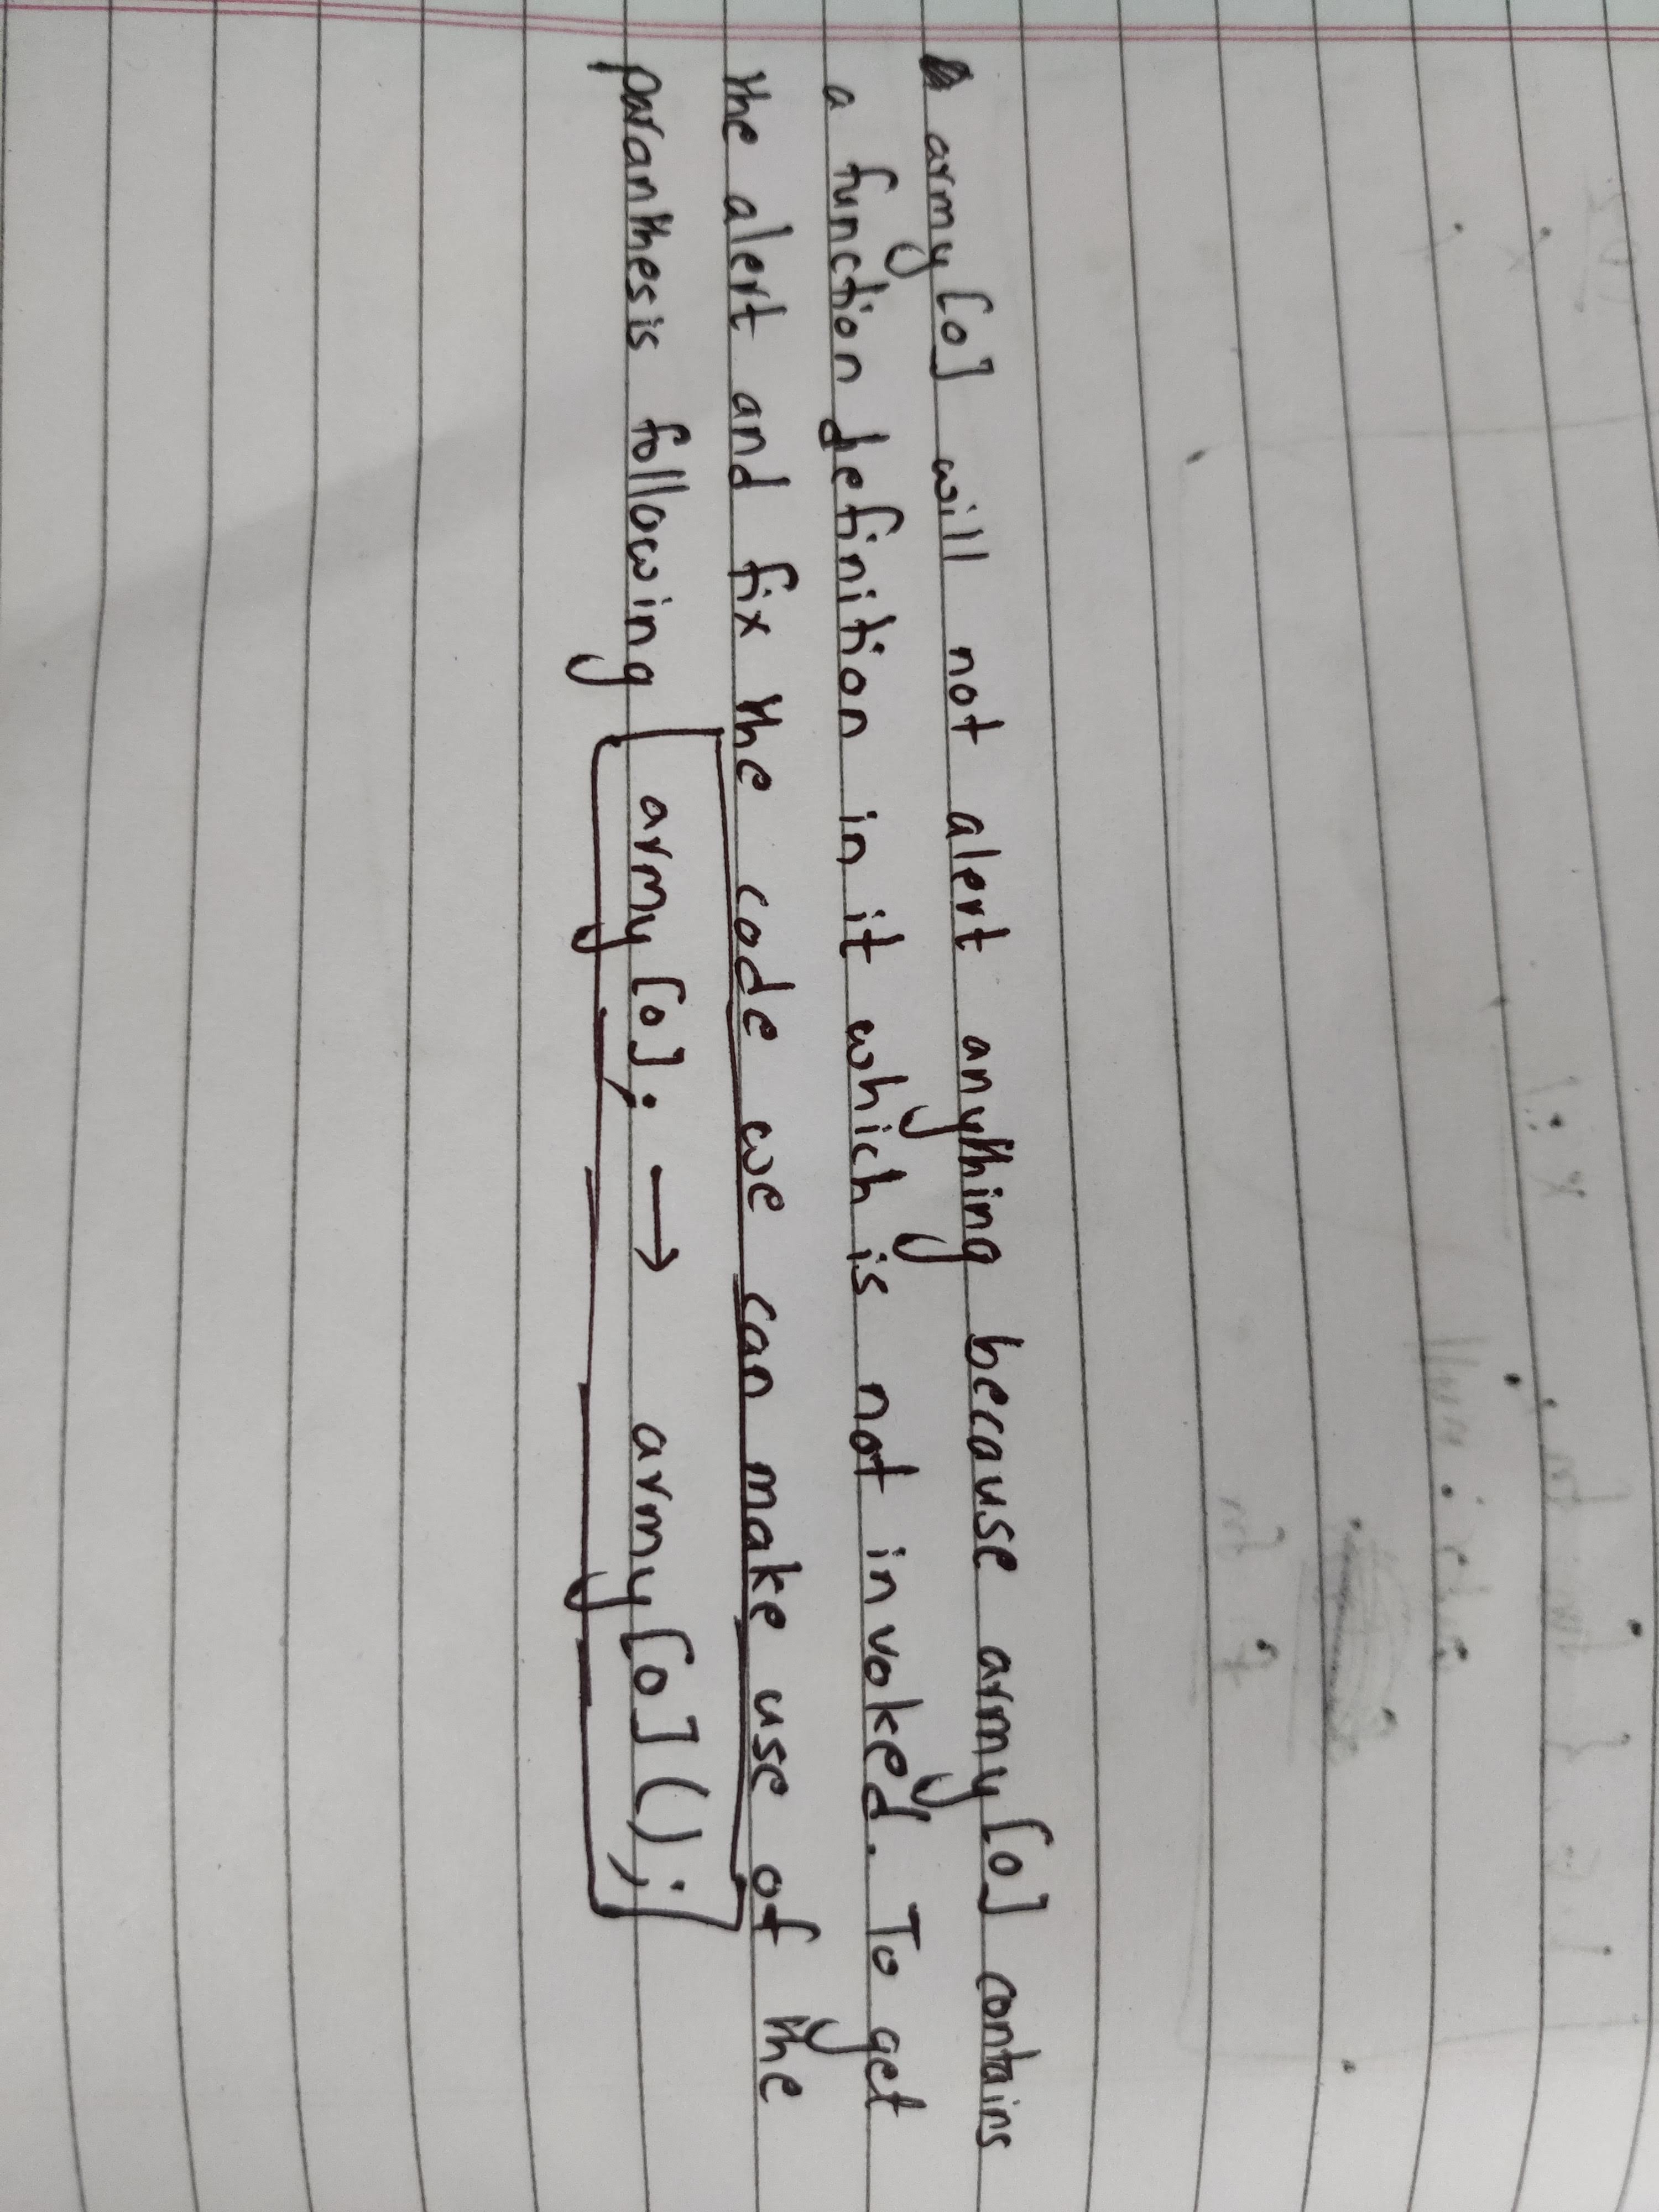 army[0] will not alert anything because army[0] contains
a function definition in it which is not invoked. To get
the alert and fix the code we can make use of the
paranthesis following army[0]; → army[0]();